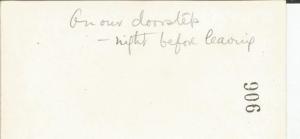 On our doorstep
- night before leaving
906